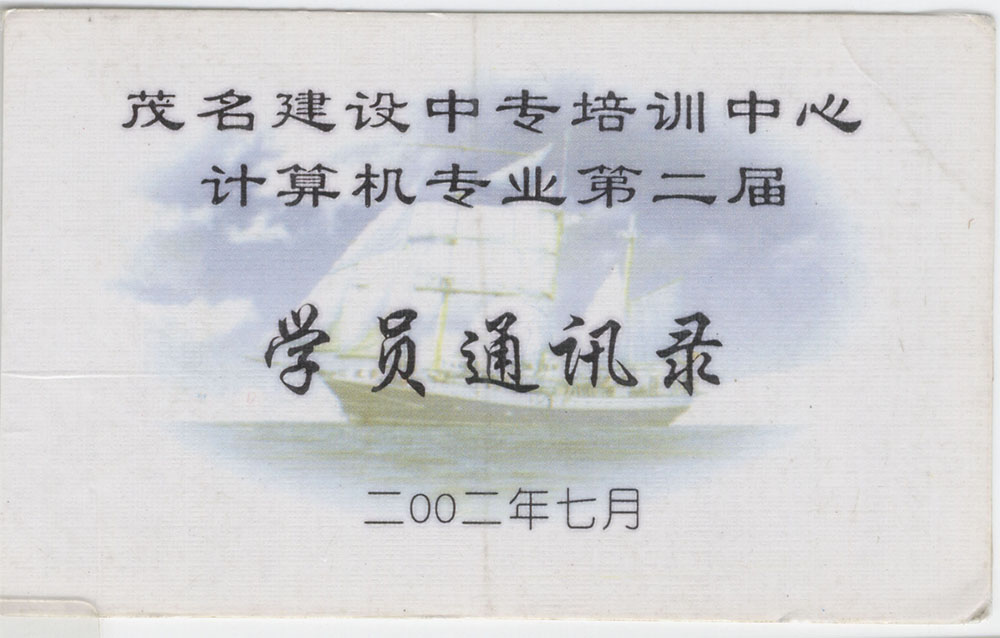 茂名建设中专培训中心
计算机专业第二届
学员通讯录
二00二年七月